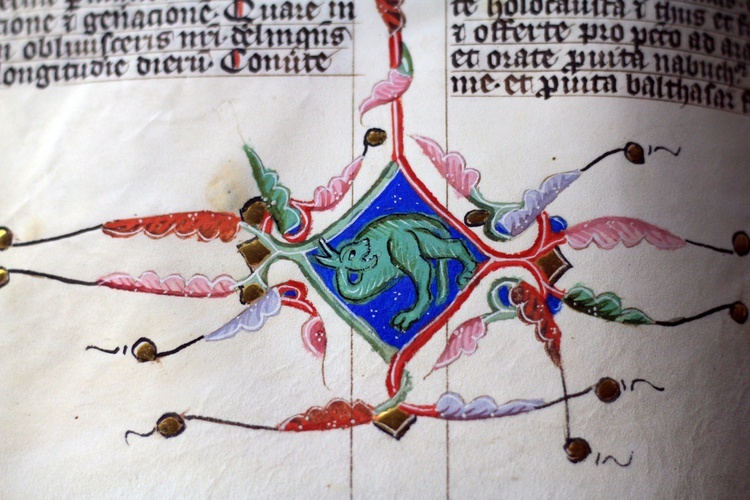 cione ⁊ gen̄acione. Quare in
obliuisceris nr̄i delinqͥs
longitudie dierū Conu̾te
te holocausta ⁊ thus et
⁊ offerte pro pcc̄o ad ar
et orate ꝓ uita nabuch
me. et ꝓ uita balthasar